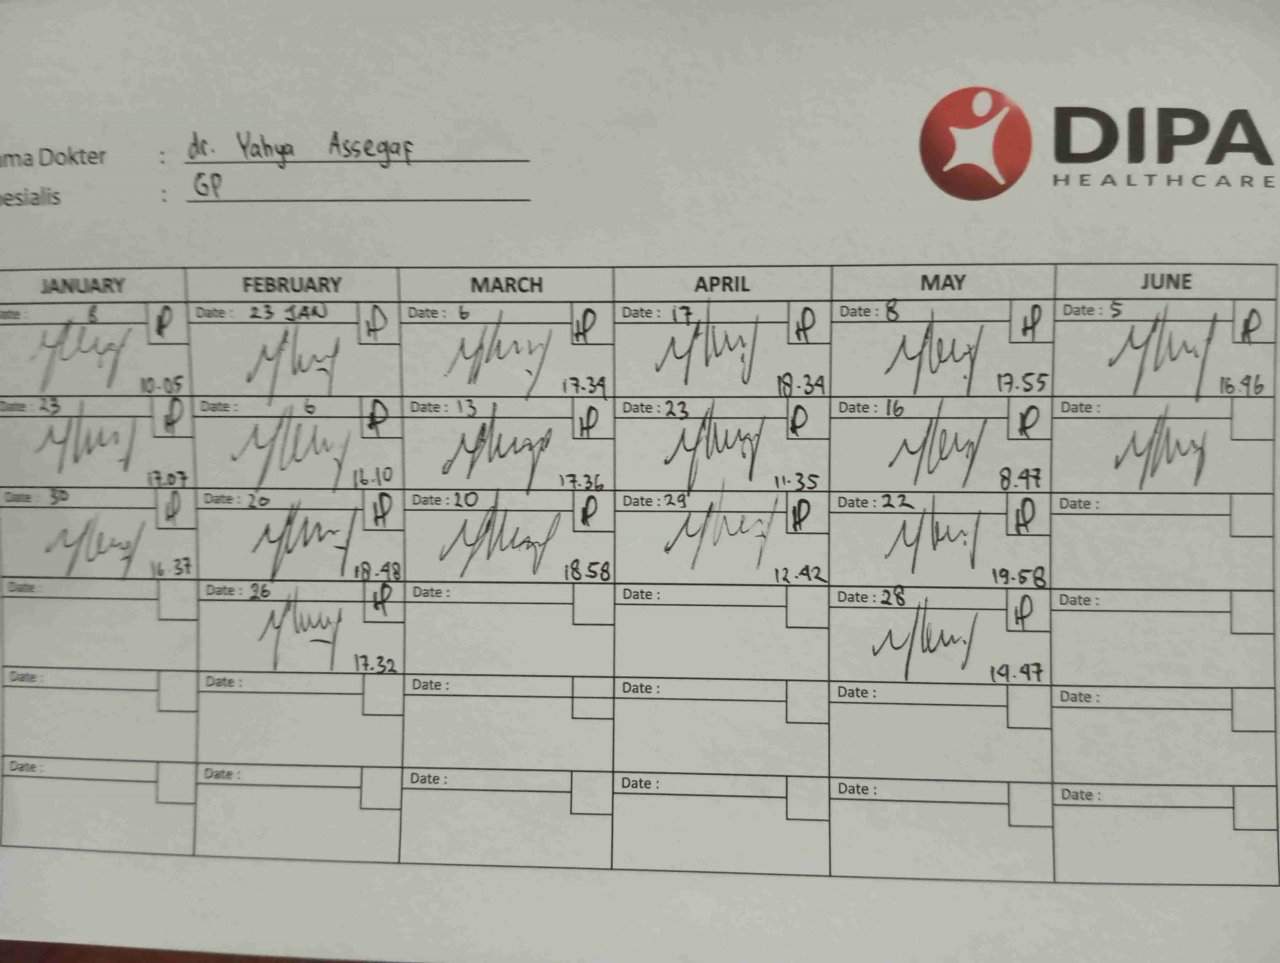 DIPA
HEALTHCARE
ma Dokter : dr. Yahya Assegaf
esialis : GP
JANUARY FEBRUARY MARCH APRIL MAY JUNE
Date : 8 Date : 23 JAN Date : 6 Date : 17 Date : 8 Date : 5
10.05 17.34 18.34 17.55 16.46
Date : 23 Date : 6 Date : 13 Date : 23 Date : 16 Date :
17.07 16.10 17.36 11.35 8.47
Date : 30 Date : 20 Date : 20 Date : 29 Date : 22 Date :
16.37 18.48 18.58 12.42 19.58
Date : Date : 26 Date : Date : Date : 28 Date :
17.32 14.47
Date : Date : Date : Date : Date : Date :
Date : Date : Date : Date : Date : Date :